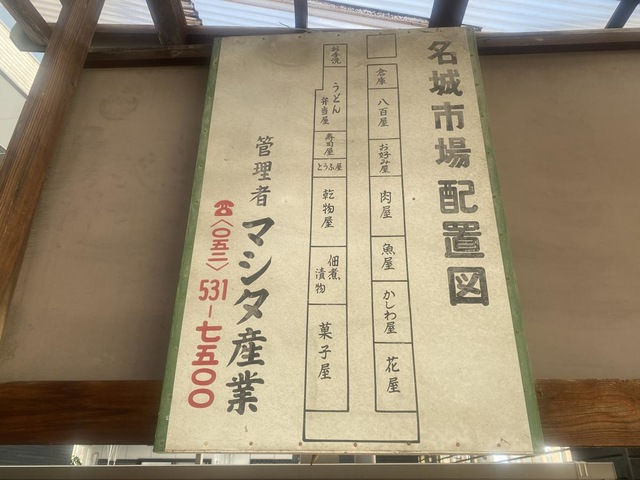 名城市場配置図
倉庫
八百屋
お好み屋
肉屋
魚屋
かしわ屋
花屋
お手洗
うどん
弁当屋
寿司屋
とうふ屋
乾物屋
佃煮
漬物
菓子屋
管理者 マシタ産業
☎〈〇五二〉531-七五〇〇